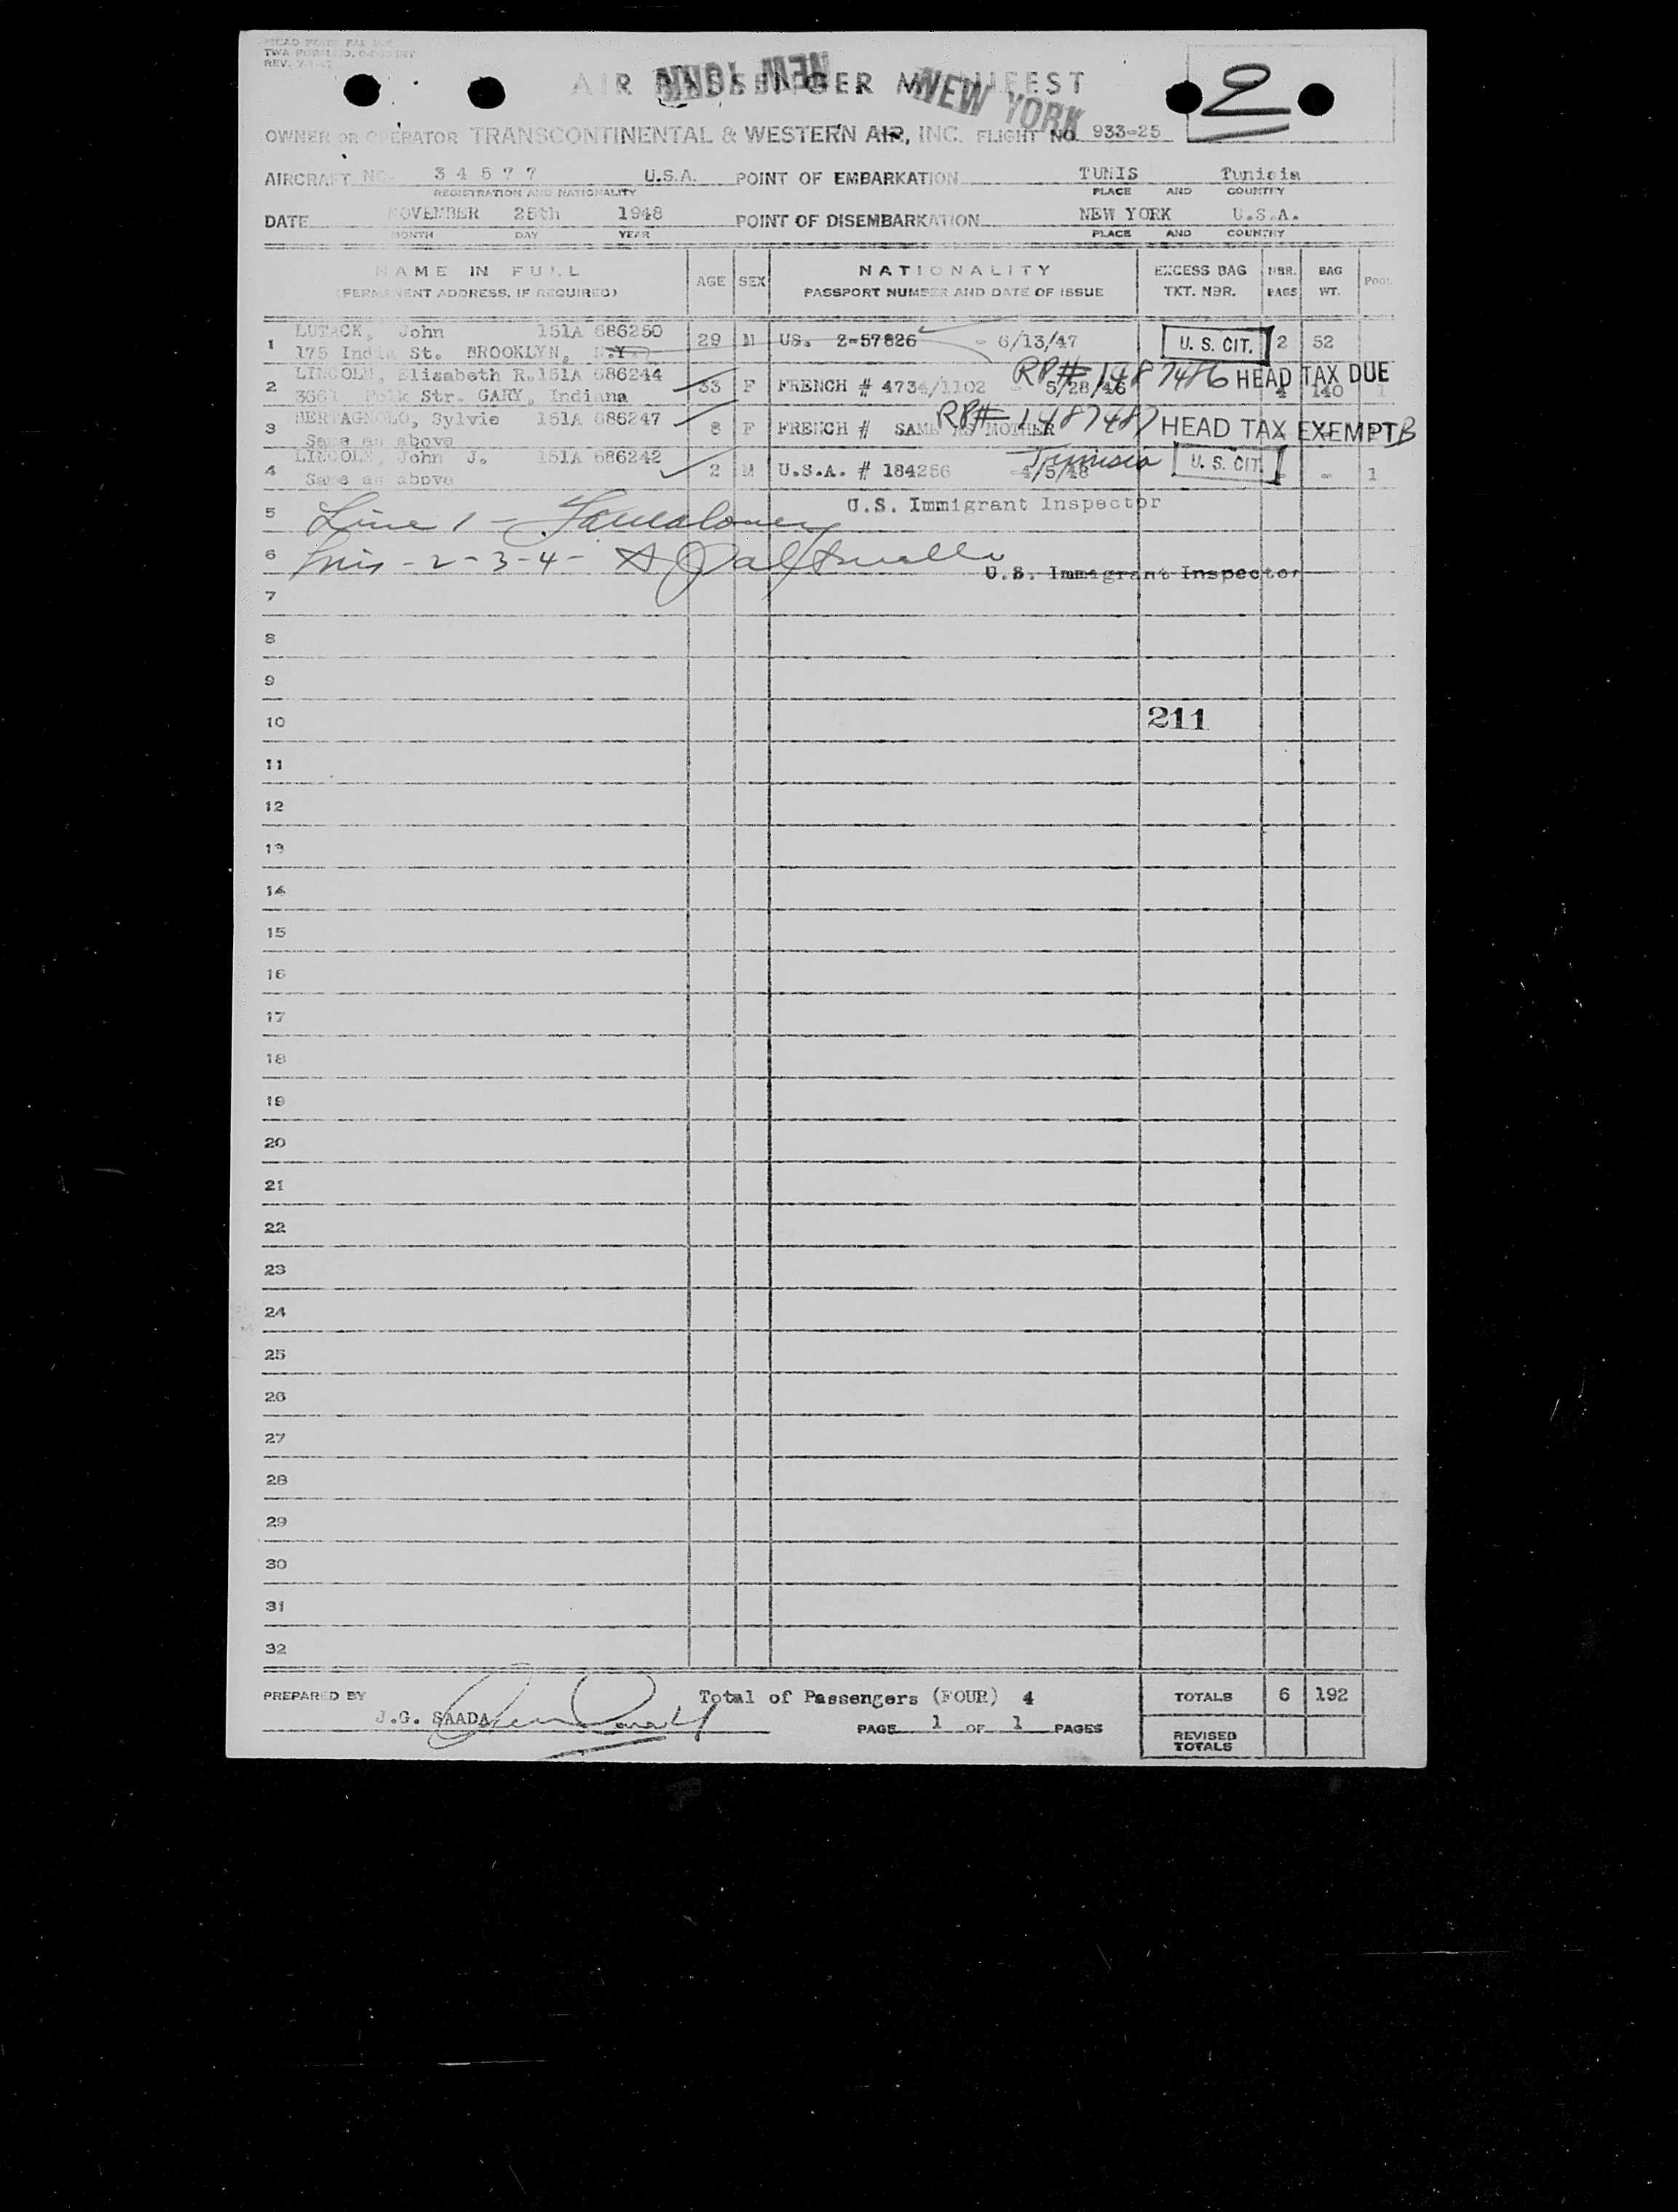 TWA FORM NO.
REV.
2
AIR PASSENGER MANIFEST
NEW YORK
NEW YORK
OWNER OR OPERATOR TRANSCONTINENTAL & WESTERN AIR, INC. FLIGHT NO. 933-25
AIRCRAFT NO. 34577 U.S.A. POINT OF EMBARKATION TUNIS Tunisia
REGISTRATION AND NATIONALITY PLACE AND COUNTRY
DATE NOVEMBER 25th 1948 POINT OF DISEMBARKATION NEW YORK U.S.A.
MONTH DAY YEAR PLACE AND COUNTRY
NAME IN FULL AGE SEX NATIONALITY EXCESS BAG NBR. BAG
(PERMANENT ADDRESS, IF REQUIRED) PASSPORT NUMBER AND DATE OF ISSUE TKT. NBR. BAGS WT.
1 LUTACK, John 151A 686250 29 M US. 2-57826 - 6/13/47 U. S. CIT. 2 52
175 India St. BROOKLYN, N.Y.
RP# 1487486 HEAD TAX DUE
2 LINCOLN, Elisabeth R. 151A 686244 33 F FRENCH # 4734/1102 5/28/46 4 140 1
Polk Str. GARY, Indiana
RP# 1487487 HEAD TAX EXEMPT B
3 BERTAGNOLO, Sylvie 151A 686247 8 F FRENCH # SAME AS MOTHER
Same as above
4 LINCOLN, John J. 151A 686242 2 M U.S.A. # 184266 4/5/48 Tunisia U. S. CIT. - - 1
Same as above
5 Line 1 - U.S. Immigrant Inspector
6 Lines - 2 - 3 - 4 - U.S. Immigrant Inspector
7
8
9
10 211
11
12
13
14
15
16
17
18
19
20
21
22
23
24
25
26
27
28
29
30
31
32
PREPARED BY J.G. SAADA Total of Passengers (FOUR) 4 TOTALS 6 192
PAGE 1 OF 1 PAGES
REVISED TOTALS